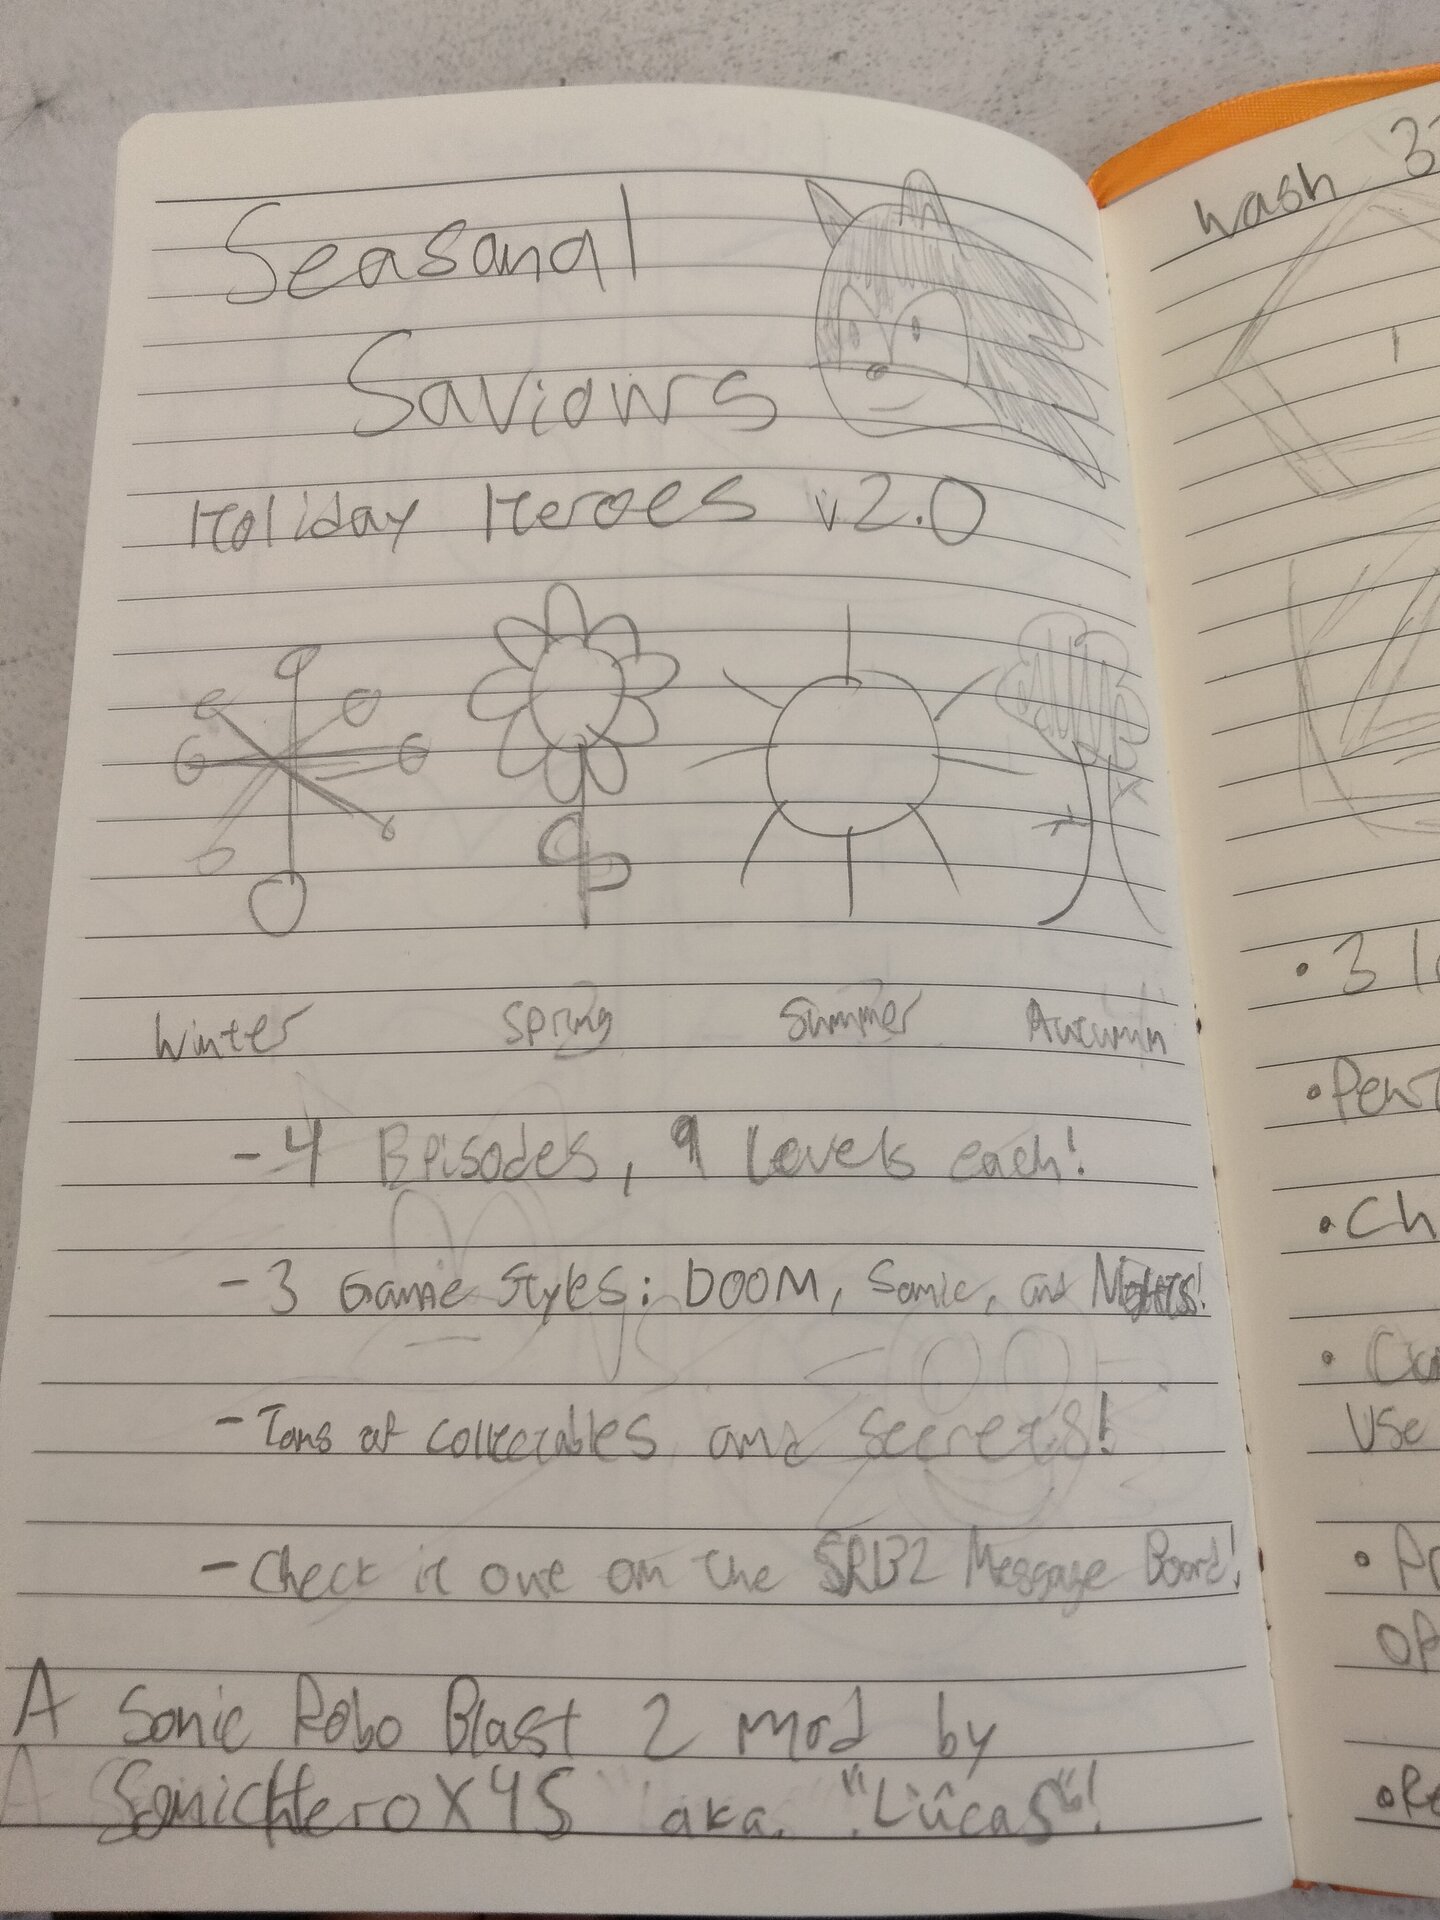 Seasonal
Saviours
Holiday Heroes v2.0
Winter Spring Summer Autumn
- 4 Episodes, 9 Levels each!
- 3 Game Styles: DOOM, Sonic, and Nights!
- Tons of collectables and secrets!
- Check it out on the SRB2 Message Board!
A Sonic Robo Blast 2 mod by
SonicHeroX45 aka. "Lucas"!
Wash
• 3
•
• Ch
•
Use
• Pr
OP
• Re